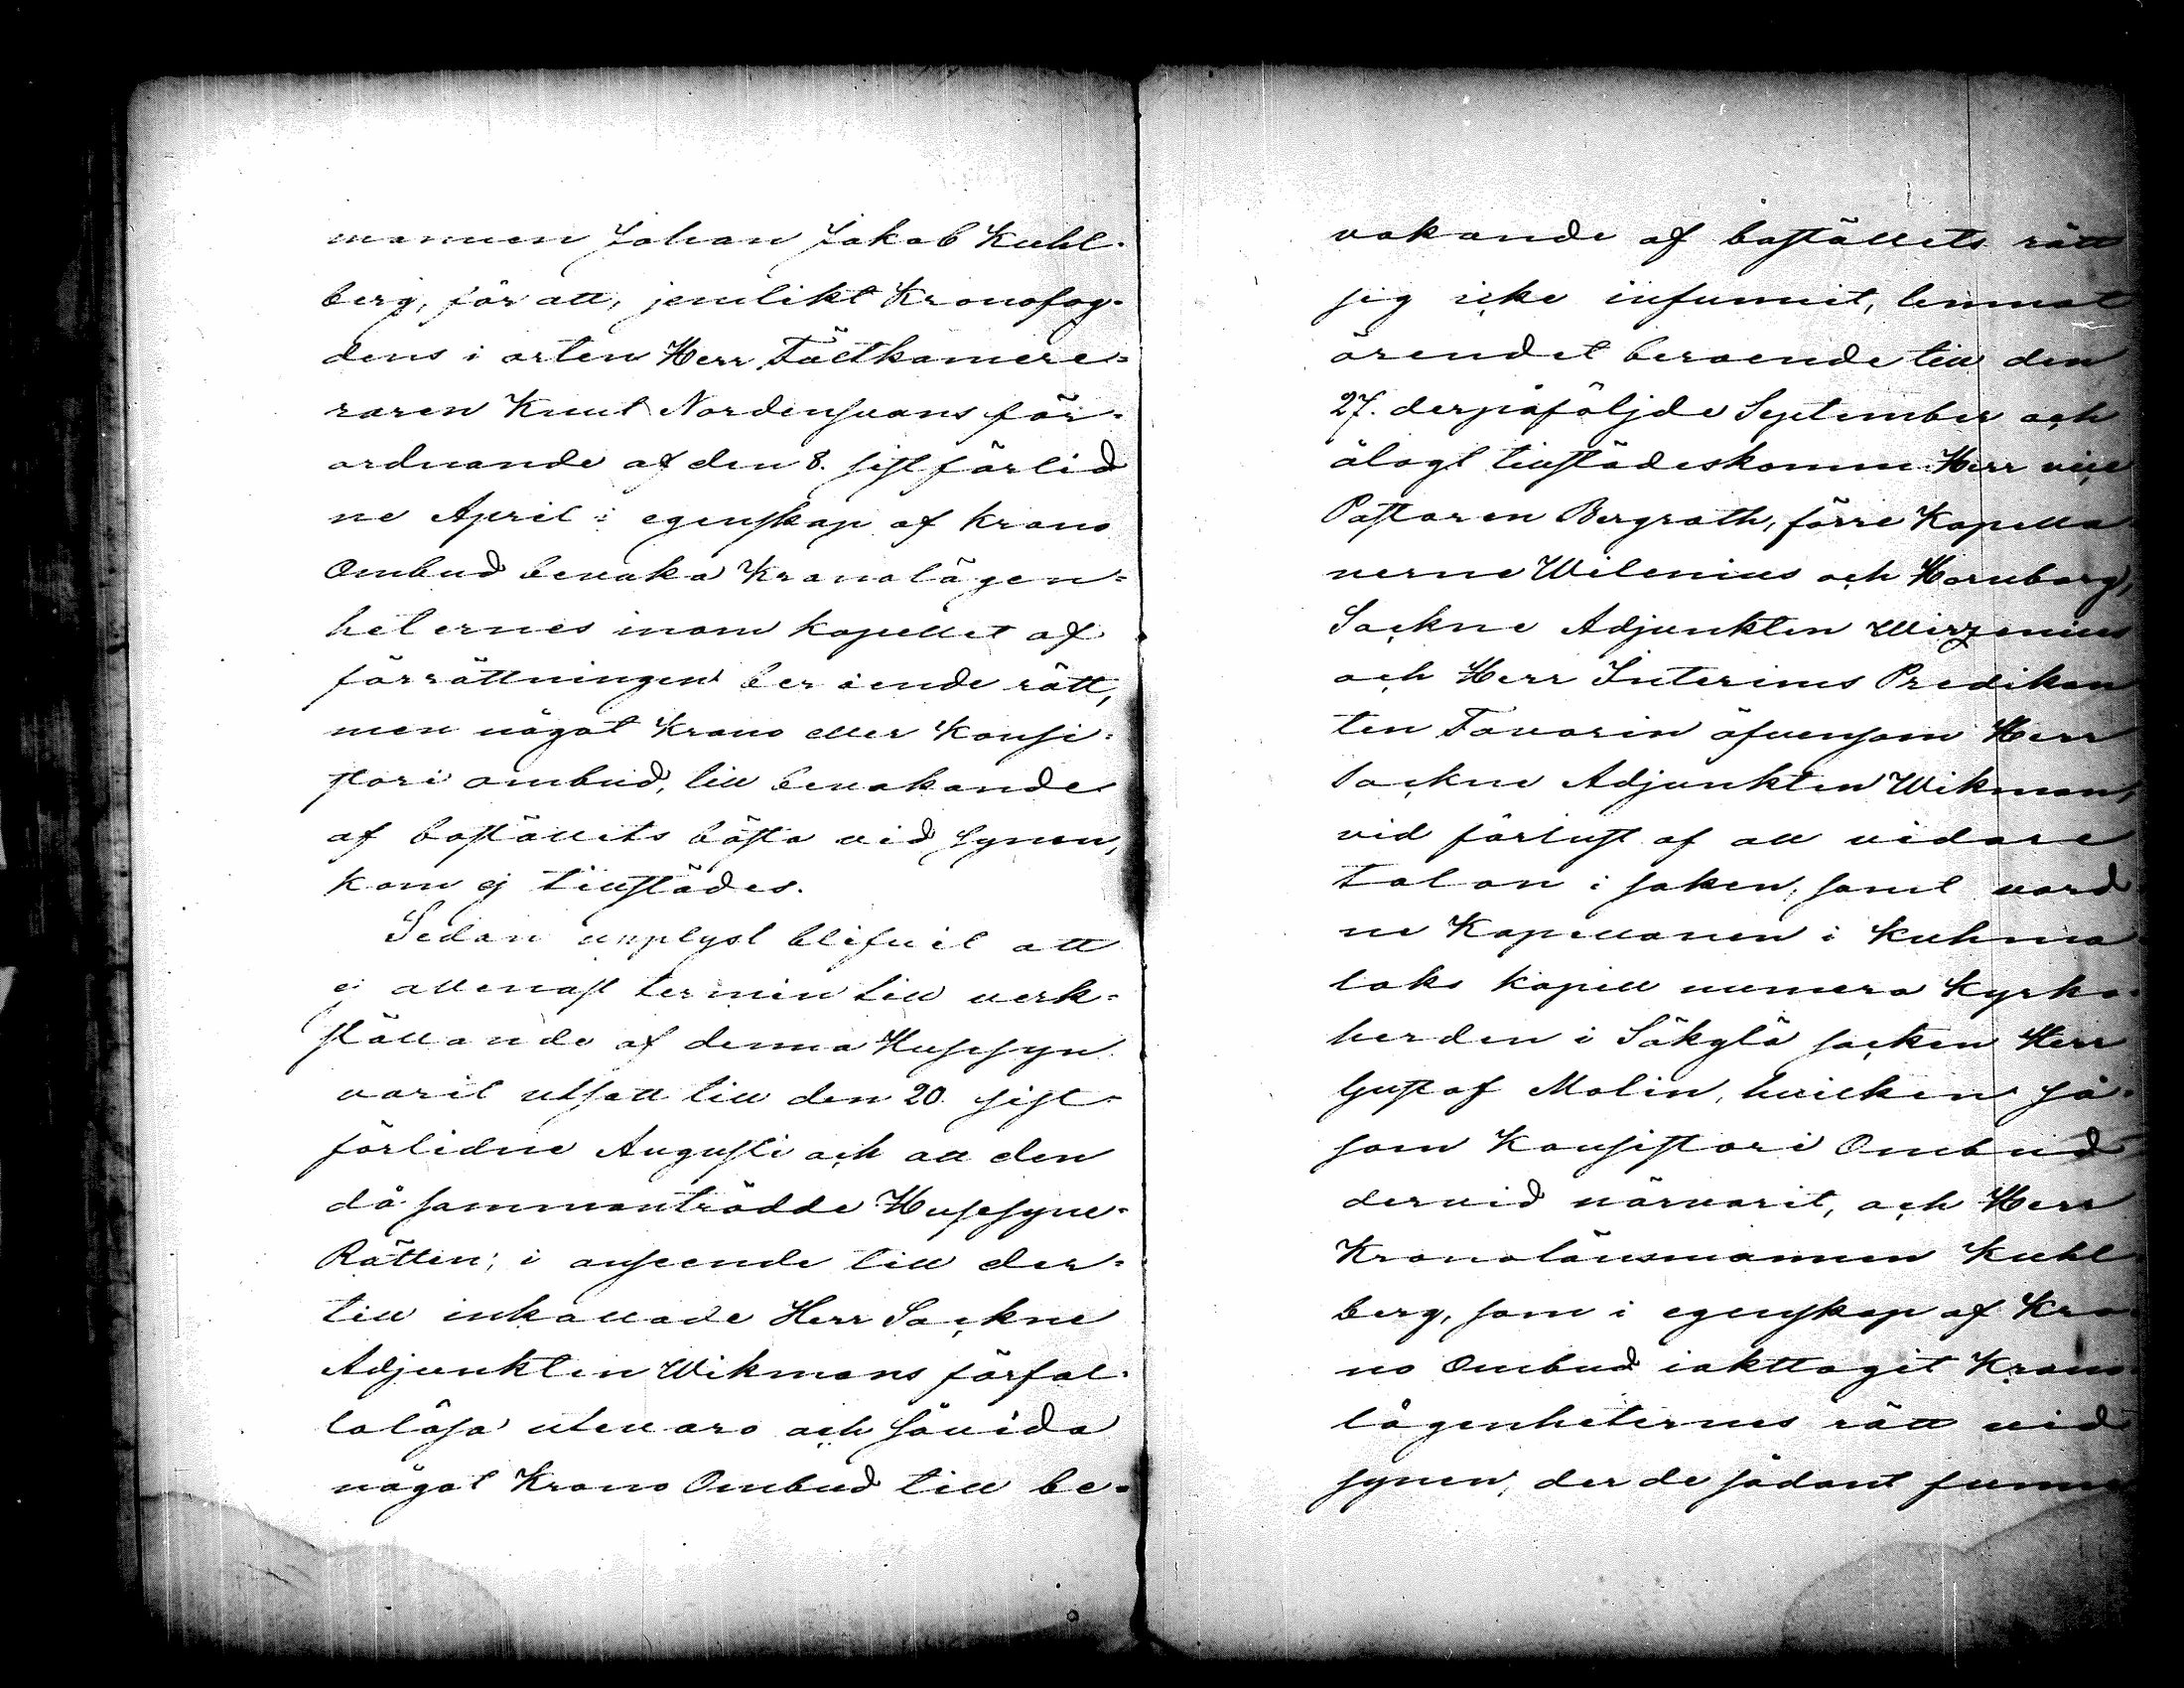 mannen Johan Jakob Kuhl-
berg, för att, jemlikt Kronofog-
dens i orten Herr Fältkamere-
raren Knut Nordensvans för-
ordnande af den 8. sistförlid
ne April i egenskap af Krono
Ombud bevaka Kronolägen-
heternes inom kapellet af
förrättningen beroende rätt,
men något Krono eller Konsi-
stori ombud, till bevakande
af boställets bästa vid synen,
kom ej tillstädes.
Sedan upplyst blifvit att
ej allenast termin till verk-
ställande af denna Husesyn
varit utsatt till den 20. sist-
förlidne Augusti och att den
då sammanträdde Husesyne-
Rätten, i anseende till der-
till inkallade Herr Sockne
Adjunkten Wikmans förfal-
lolösa utevaro och såvida
något Krono Ombud till be-
vakande af boställets rätt
sig icke infunnit, lemnat
ärendet beroende till den
27. derpåföljde September och
ålagt tillstädeskomne Herr vice
Pastoren Bergroth, förre Kapella
nerne Wilenius och Hornborg,
Sockne Adjunkten Wirzenius
och Herr Interims Predikan
ten Favorin äfvensom Herr
Sockne Adjunkten Wikman,
vid förlust af all vidare
talan i saken, samt vord
ne Kapellanen i Kuhma
laks kapell numera Kyrko-
herden i Säkylä socken Herr
Gustaf Molin, hvilken så-
som Konsistori Ombud
dervid närvarit, och Herr
Kronolänsmannen Kuhl
berg, som i egenskap af Kro
no Ombud iakttagit Krono
lägenheternes rätt vid
synen, der de sådant funne